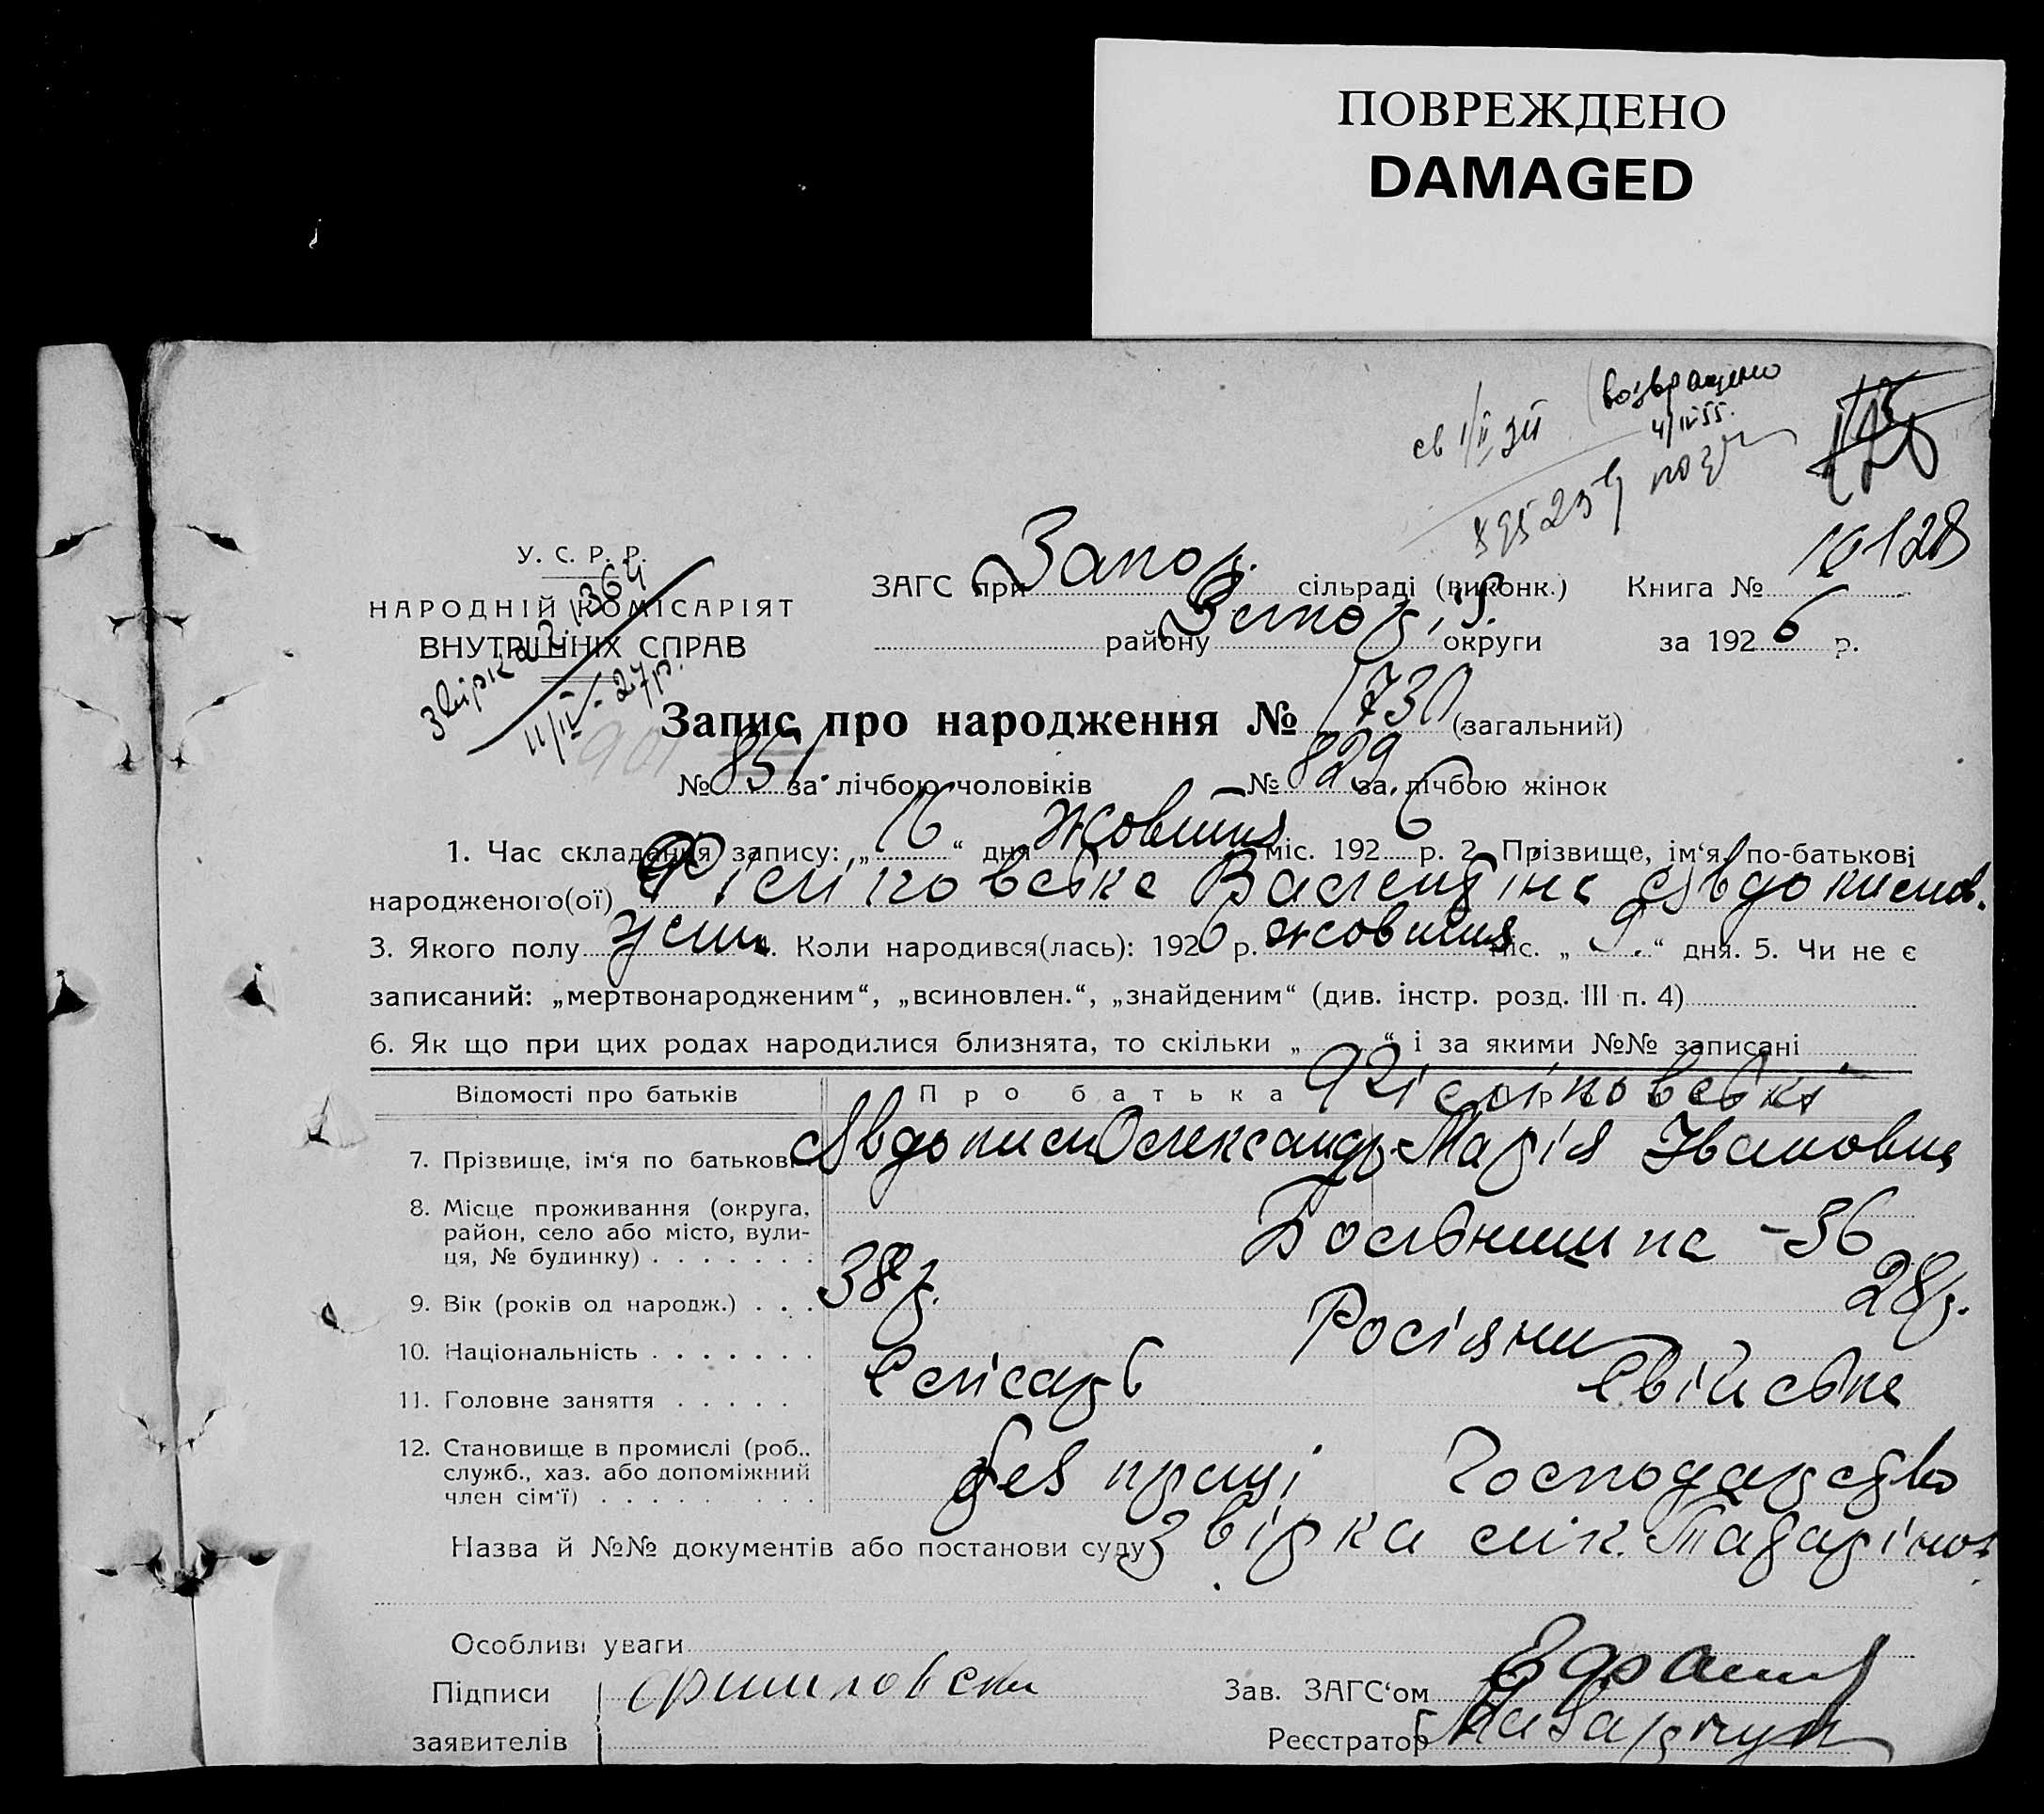 ПОВРЕЖДЕНО
DAMAGED
св 1/II 3
возвращено
4/IV 55.
У. С. Р. Р.
НАРОДНІЙ КОМІСАРІЯТ
ВНУТРІШНІХ СПРАВ
Звірка 2.1364
11/II - 27 р.
901
ЗАГС при Запор. сільраді (виконк.) Книга № 10128
району Запор. округи за 1926 р.
Запис про народження № 1730 (загальний)
№ 851. за лічбою чоловіків № 829 за лічбою жінок
1. Час складання запису: „16“ дня Жовтня міс. 1926 р. 2. Прізвище, ім‘я, по-батькові
народженого(ої) Філіповська Валентіна Явдокимов.
3. Якого полу жін. 4. Коли народився(лась): 1926 р. жовтня міс. „9.“ дня. 5. Чи не є
записаний: „мертвонародженим“, „всиновлен.“, „знайденим“ (див. інстр. розд. III п. 4)
6. Як що при цих родах народилися близнята, то скільки „ “ і за якими №№ записані
Відомості про батьків Про батька Філіповські
7. Прізвище, ім‘я по батькові Явдоким Олександр. Марія Івановна
8. Місце проживання (округа, район, село або місто, вулиця, № будинку) - 36
9. Вік (років од народж.) 38 р. 28 р.
10. Національність Росіяни
11. Головне заняття Слісарь Свійське
12. Становище в промислі (роб., служб., хаз. або допоміжний член сім‘ї) без праці Господарство
Назва й №№ документів або постанови суду Звірка лік.
Особливі уваги
Підписи Филиповски Зав. ЗАГС‘ом
заявителів Реєстратор